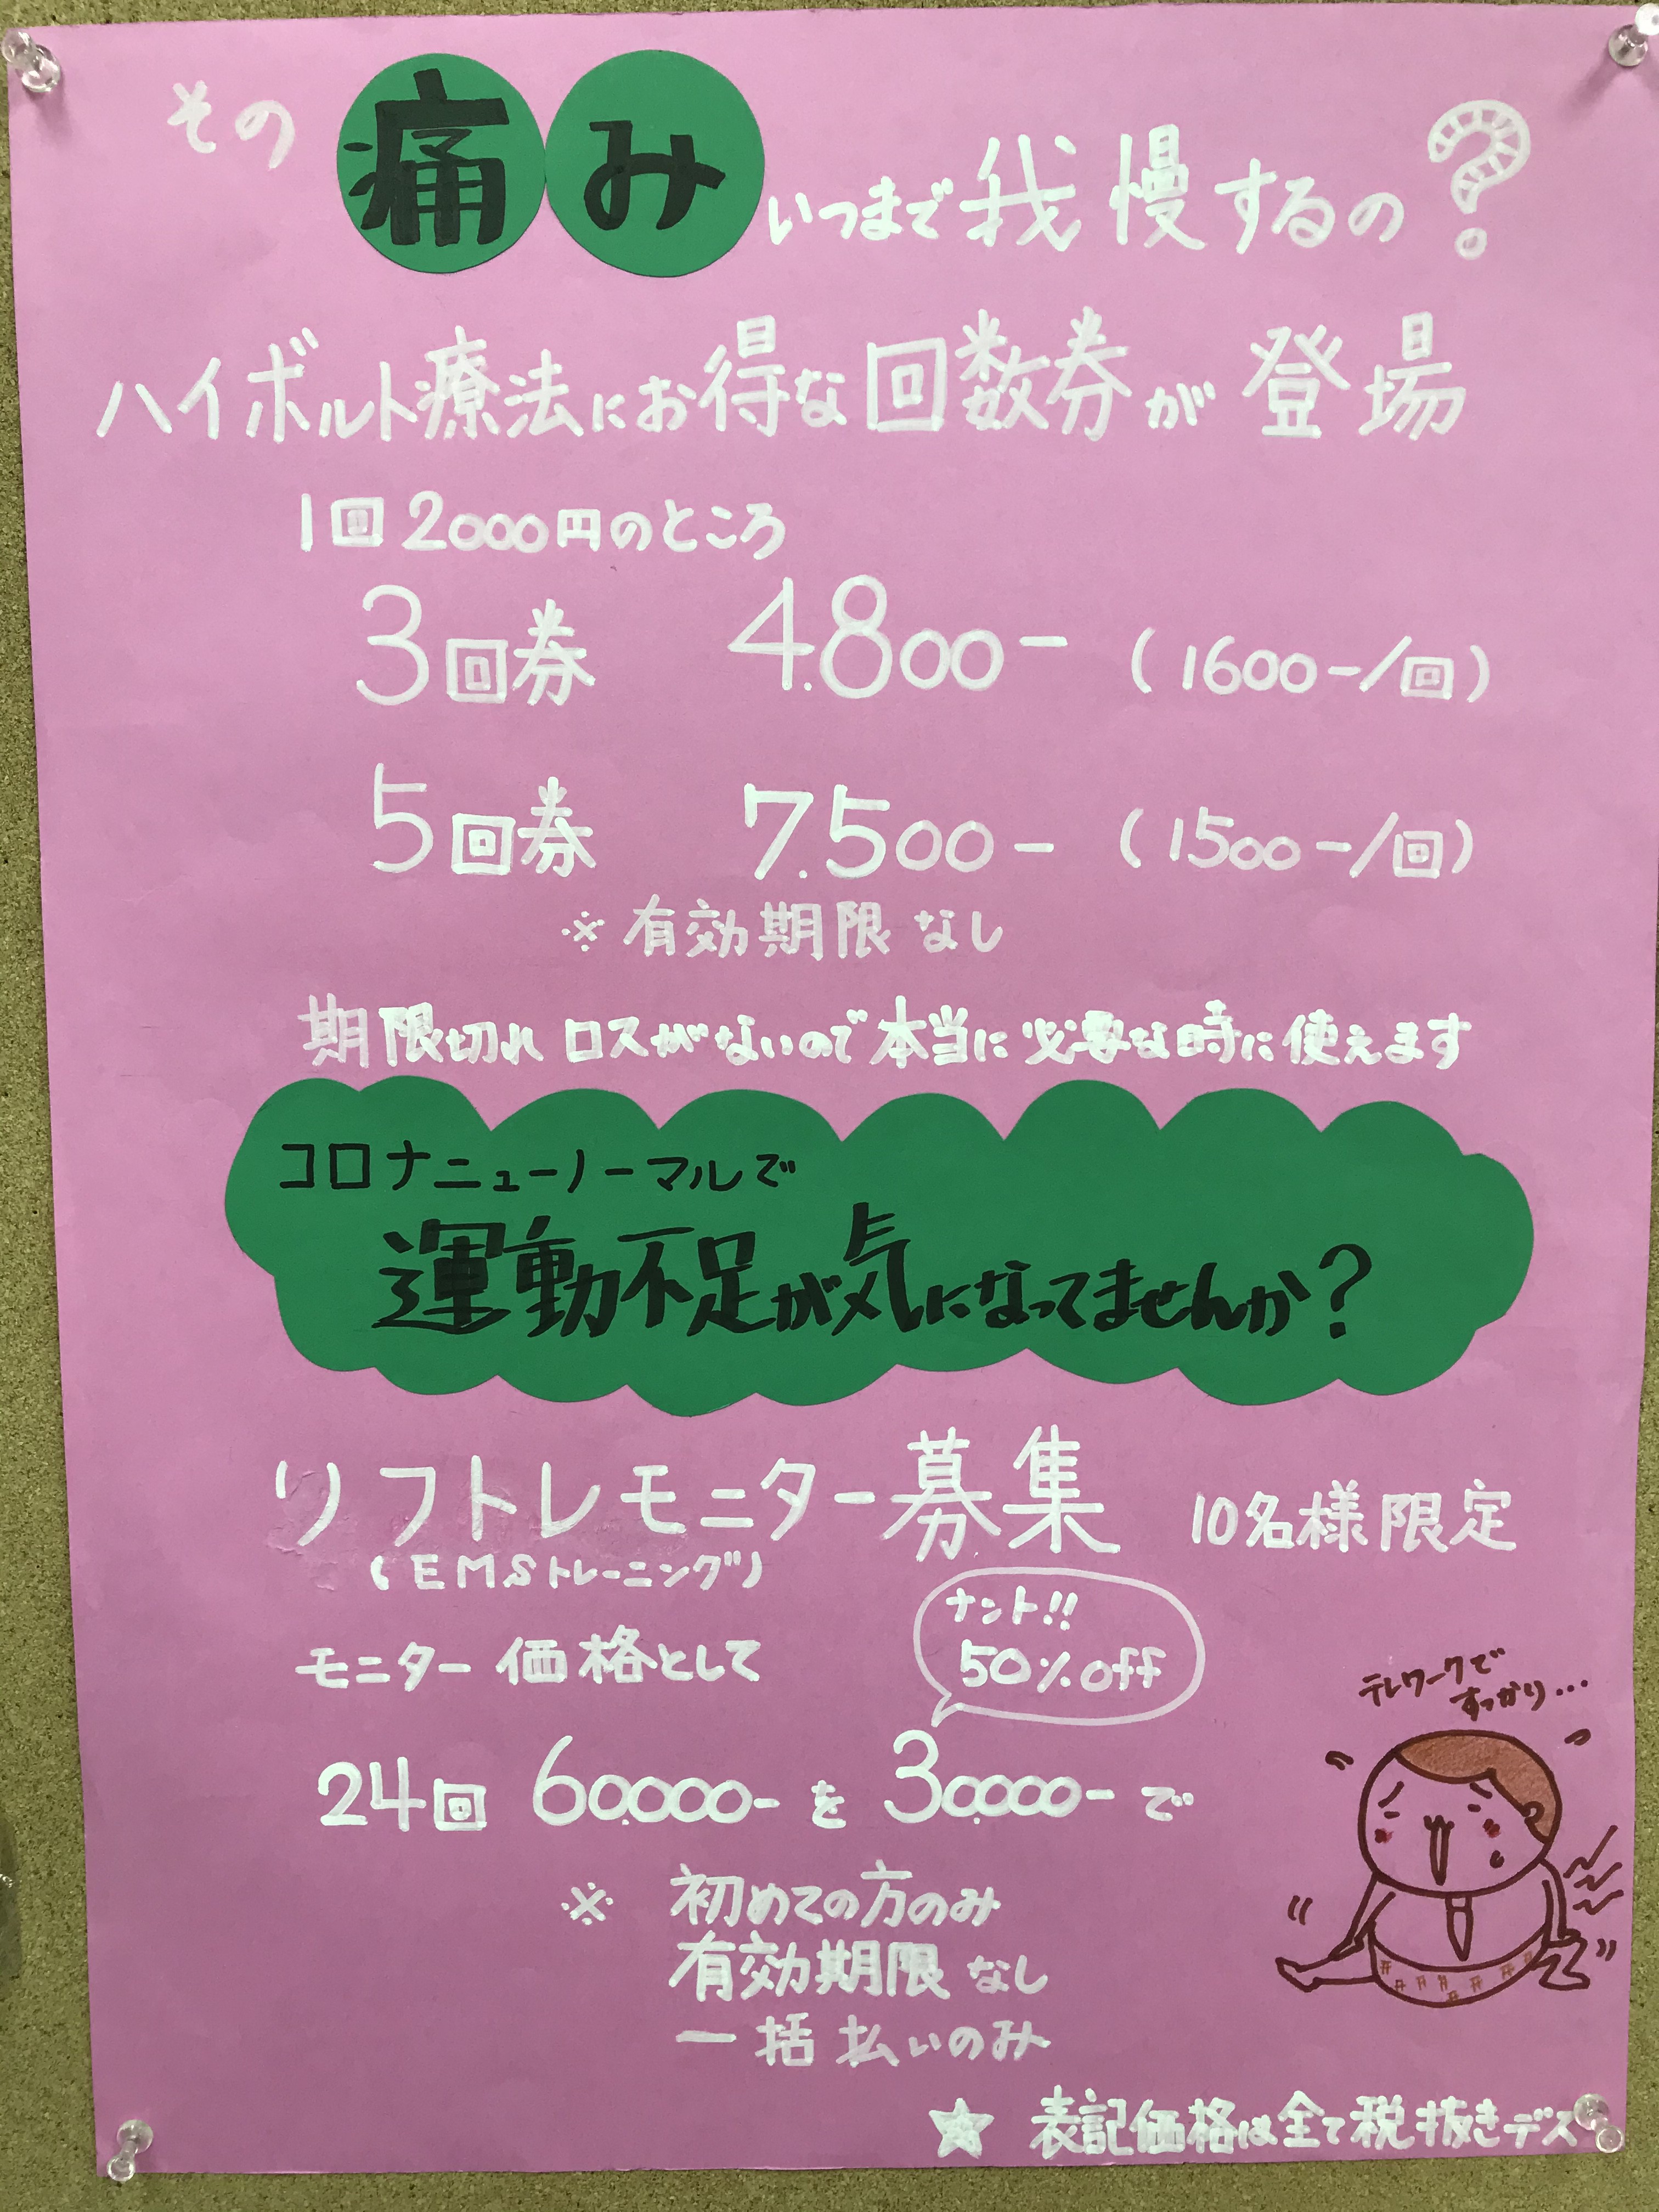 その痛みいつまで我慢するの?
ハイボルト療法にお得な回数券が登場
1回2000円のところ
3回券 4.800- (1600-/回)
5回券 7.500- (1500-/回)
※有効期限なし
期限切れロスがないので本当に必要な時に使えます
コロナニューノーマルで
運動不足が気になってませんか?
リフトレモニター募集 10名様限定
(EMSトレーニング)
モニター価格として
ナント!!
50%off
24回 60.000-を30.000-で
※ 初めての方のみ
有効期限なし
一括払いのみ
テレワークで
すっかり…
★ 表記価格は全て税抜きデス